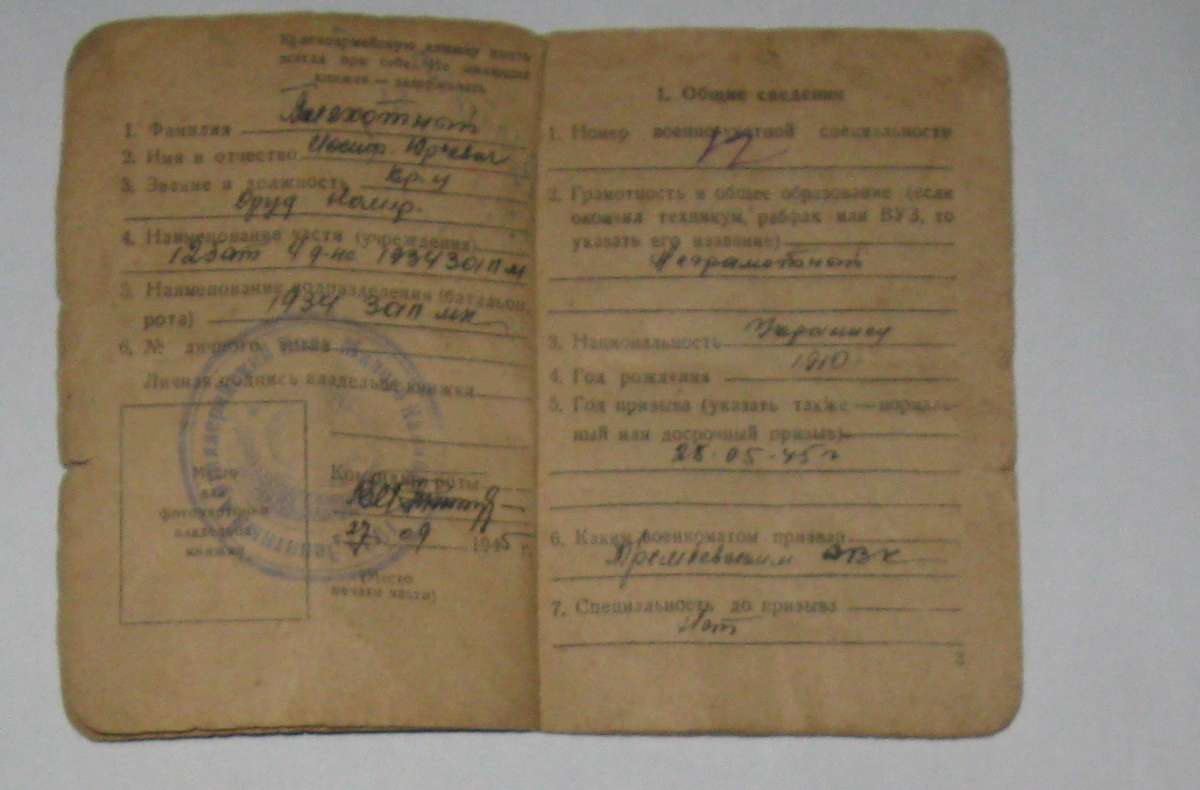 Красноармейскую книжку иметь
всегда при себе. Не имеющих
книжки — задерживать
1. Фамилия
2. Имя и отчество Иосиф Юрьевич
3. Звание и должность кр-ц
Оруд Номер.
4. Наименование части (учреждения)
12 бат 4 д-не 1934 зап м
5. Наименование подразделения (батальон,
1934 зап мп
рота)
6. № личного знака
Личная подпись владельца книжки
Место
для
фотокарточки
владельца
книжки
Командир роты
„27“ 09 1945 г.
(Место
печати части)
1. Общие сведения
1. Номер военно-учетной специальности
2. Грамотность и общее образование (если
окончил техникум, рабфак или ВУЗ, то
указать его название)
Неграмотной
3. Национальность Украинец
4. Год рождения 1910
5. Год призыва (указать также — нормаль-
ный или досрочный призыв)
28.05.45 г
6. Каким военкоматом призван
РВК
7. Специальность до призыва